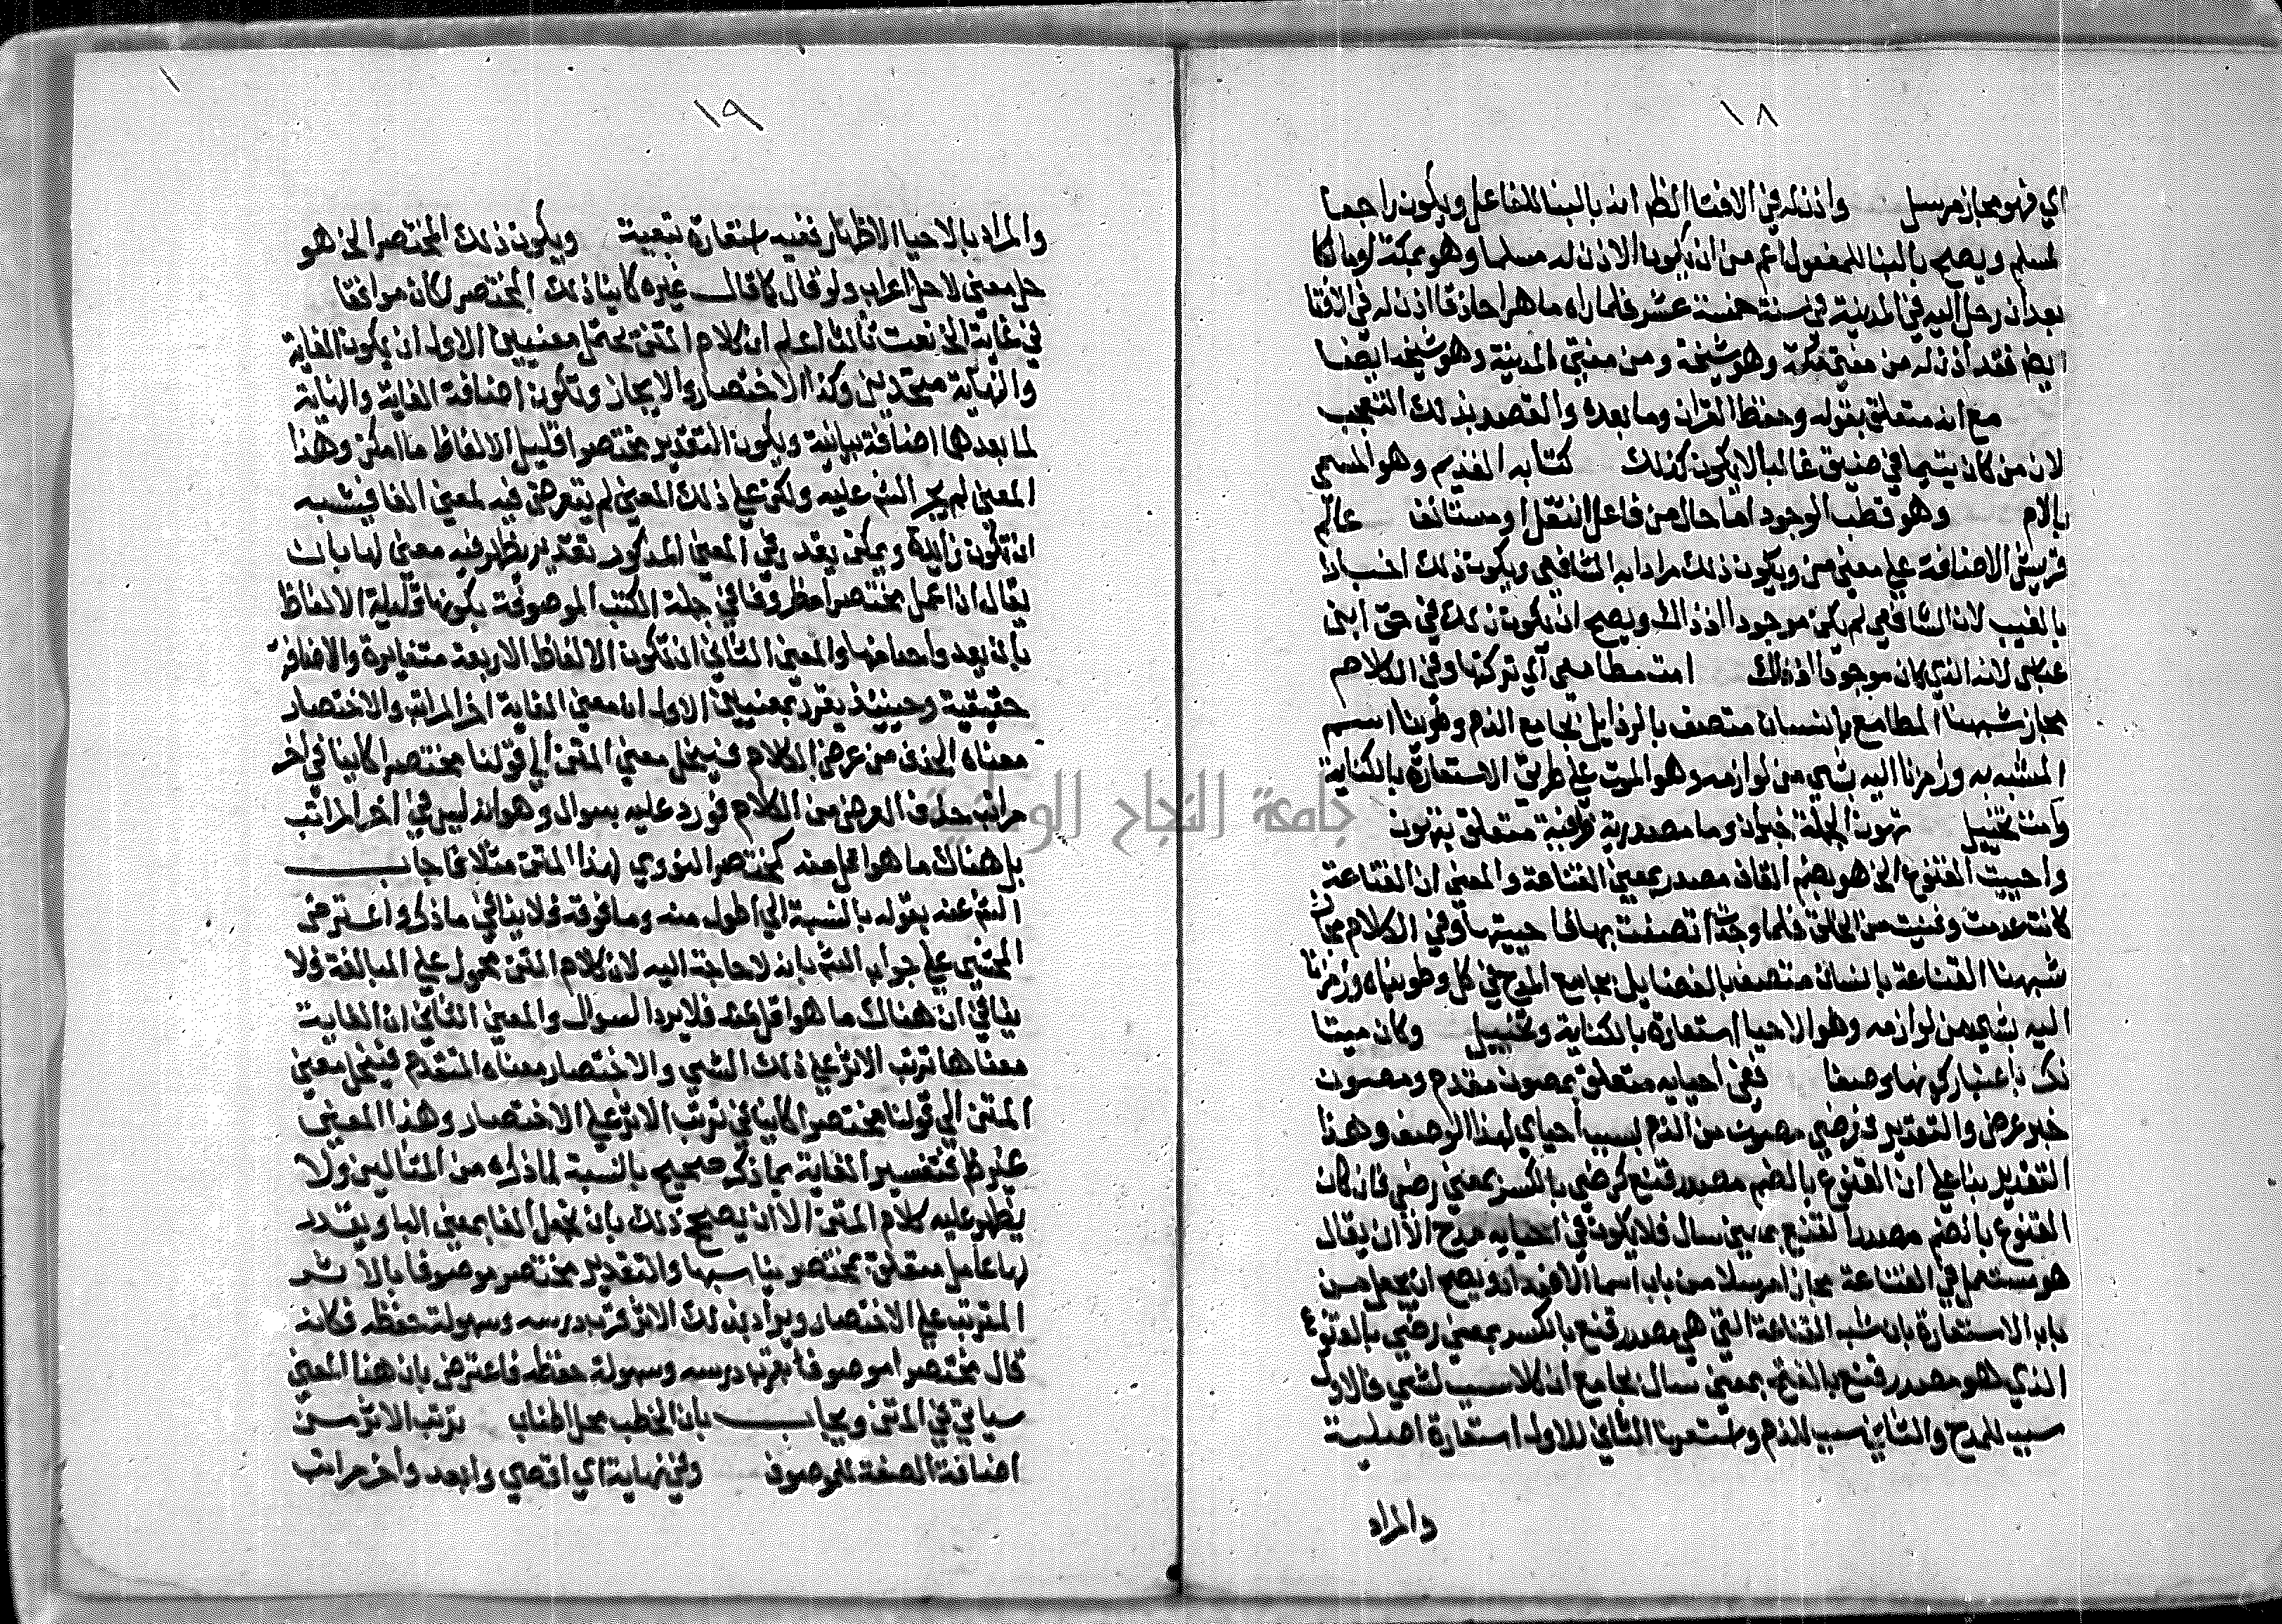 ١٨
اي فهو مجاز مرسل واذنله في الافتا الظ انه بالبنا للفاعل ويكون راجعا
لمسلم ويصح بالبنا للمفعول اعم من ان يكون الاذن له مسلما وهو بمكة او مالكا
بعد ان رحل اليه في المدينة في سنة خمسة عشر فلما راه ماهرا حاذقا اذن له في الافتا
ايض فقد اذن له من مفتي مكة وهو شيخه ومن مفتي المدينة وهو شيخه ايضا
مع انه متعلق بقوله وحفظ القران وما بعده والقصد بذلك التعجب
لان من كان يتيما في ضيق غالبا لا يكون كذلك كتابه القديم وهو المسمى
بالام وهو قطب الوجود اما حال من فاعل انتقل او مستانف عالم
قريش الاضافة على معنى من ويكون ذلك مرادا به الشافعي ويكون ذلك اخبارا
بالغيب لان الشافعي لم يكن موجودا اذ ذاك ويصح ان يكون ذلك في حق ابن
عباس لانه الذي كان موجودا اذ ذلك امت مطامعي اي تركتها وفي الكلام
مجاز شبهنا المطامع بانسان متصف بالرذايل بجامع الذم وطوينا اسم
المشبه به ورمزنا اليه بشي من لوازمه وهو الموت على طريق الاستعارة بالكناية
وامت تخييل تهون الجملة خبران وما مصدرية ظرفية متعلق بتهون
واحييت القنوع الخ هو بضم القاف مصدر بمعنى القناعة والمعنى ان القناعة
كانت عدمت وفنيت من الخلق فلما وجدت اتصفت بها فاحييتها وفي الكلام مجاز
شبهنا القناعة بانسان متصف بالفضايل بجامع المدح في كل وطويناه ورمزنا
اليه بشي من لوازمه وهو الاحيا استعارة بالكناية وتخييل وكان ميتا
ذكر باعتبار كونها وصفا ففي احيايه متعلق بمصون مقدم ومصون
خبر عرض والتقدير فعرضي مصون من الذم بسبب احياي لهذا الوصف وهذا
التقدير بنا على ان القنوع بالضم مصدر قنع كرضي بالكسر بمعنى رضي فان كان
القنوع بالضم مصدرا لقنع بمعنى سال فلا يكون في احيايه مدح الا ان يقال
هو مستعمل في القناعة مجازا مرسلا من باب اسما الاضداد ويصح ان يجعل من
باب الاستعارة بان شبه القناعة التي هي مصدر قنع بالكسر بمعنى رضي بالقنوع
الذي هو مصدر قنع بالفتح بمعنى سال بجامع ان كلا سبب لشي فالاول
سبب للمدح والثاني سبب للذم واستعرنا الثاني للاول استعارة اصلية
والمراد
١٩
والمراد بالاحيا الاظهار ففيه استعارة تبعية ويكون ذلك المختصر الخ هو
حل معنى لا حل اعراب ولو قال كما قال غيره كاينا ذلك المختصر لكان موافقا
في غاية الخ نعت ثالث اعلم ان كلام المتن يحتمل معنيين الاول ان يكون الغاية
والنهاية متحدين وكذا الاختصار والايجاز وتكون اضافة الغاية والنهاية
لما بعدهما اضافة بيانية ويكون التقدير مختصرا قليل الالفاظ ما امكن وهذا
المعنى لم يجر الش عليه ولكن على ذلك المعنى لم يتعرض فيه لمعنى الفا فيشبه
ان تكون زايدة ويمكن بعد رقي المعنى المذكور تقدير يظهر فيه معنى لها بان
يقال ان اعمل مختصرا مظروفا في جملة الكتب الموصوفة بكونها قليلة الالفاظ
بان يعد واحدا منها والمعنى الثاني ان تكون الالفاظ الاربعة متغايرة والاضافة
حقيقية وحينيذ يقرر بمعنيين الاول ان معنى الغاية اخر المراتب والاختصار
معناه الحذف من عرض الكلام فينحل معنى المتن الى قولنا مختصرا كاينا في اخر
مراتب حذف العرض من الكلام فورد عليه بسوال وهو انه ليس في اخر المراتب
بل هناك ما هو اقل منه كمختصر النووي لهذا المتن مثلا فاجاب
الش عنه بقوله بالنسبة الى اطول منه وما فوقه فلا ينافي ما ذكر واعترض
المحشي على جواب الش بانه لا حاجة اليه لان كلام المتن محمول على المبالغة فلا
ينافي ان هناك ما هو اقل منه فلا يرد السوال والمعنى الثاني ان الغاية
معناها ترتب الاثر على ذلك الشي والاختصار معناه المتقدم فينحل معنى
المتن الى قولنا مختصرا كاينا في ترتب الاثر على الاختصار وهذا المعنى
غير ظ فتفسير الغاية بما ذكر صحيح بالنسبة لما ذكره من المثالين ولا
يظهر عليه كلام المتن الا ان يصحح ذلك بان تجعل الفا بمعنى البا ويقدر
لها عامل متعلق بمختصر يناسبها والتقدير مختصر موصوفا بالاثر
المترتب على الاختصار ويراد بذلك الاثر قرب درسه وسهولة حفظه فكانه
قال مختصرا موصوفا بقرب درسه وسهولة حفظه فاعترض بان هذا المعنى
سياتي في المتن ويجاب بان الخطب محل اطناب ترتب الاثر من
اضافة الصفة للموصوف وفي نهاية اي اقصى وابعد واخر مراتب